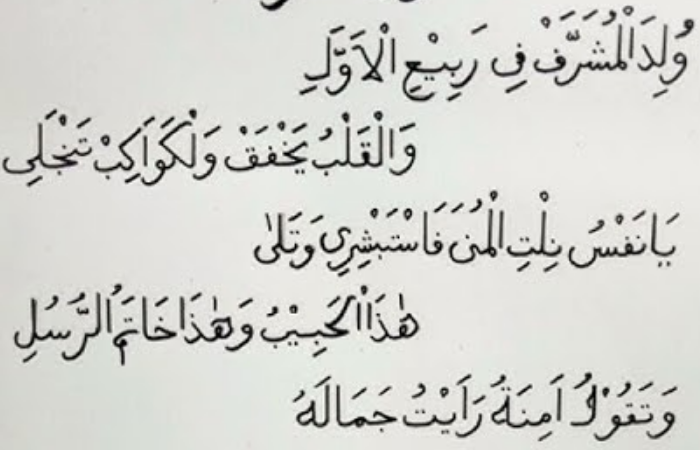 وُلِدَالْمُشَرَّفْ فِى رَبِيْعِ الْاَوَّلِ
وَالْقَلْبُ يَخْفَقْ وَلْكَوَاكِبْ تَنْجَلِى
يَانَفْسُ نِلْتِ الْمُنَى فَاسْتَبْشِرِي وَتَلىٰ
هٰذَاالْحَبِيْبُ وَهٰذَاخَاتَمُ الرُّسُلِ
وَتَقُوْلُ اَمِنَةُ رَاَيْتُ جَمَالَهُ